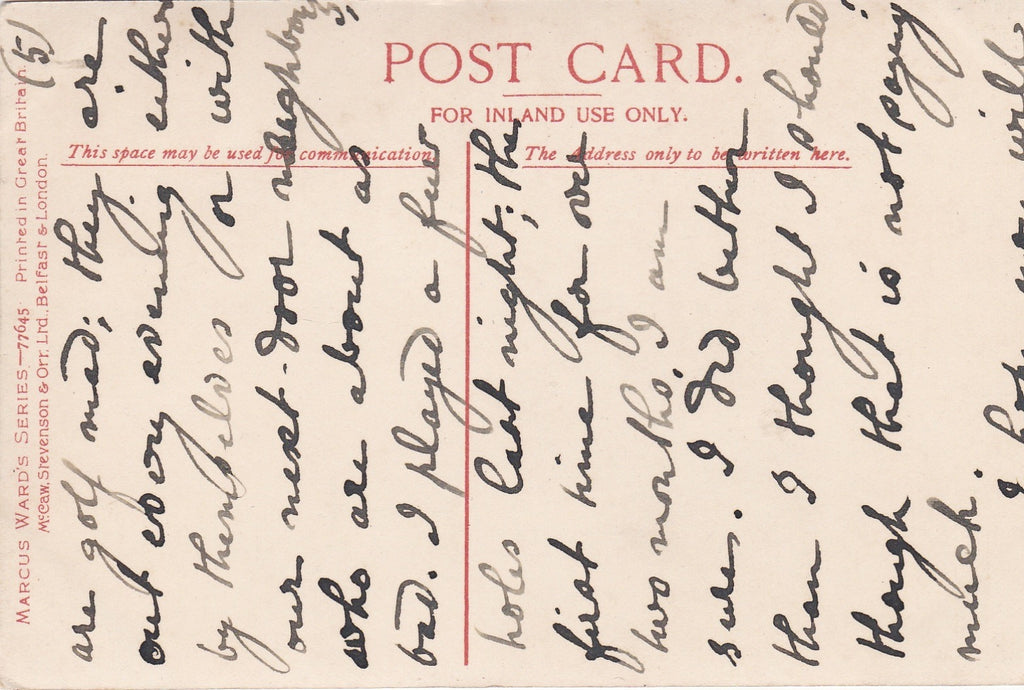 POST CARD.
FOR INLAND USE ONLY.
This space may be used for communication.
The Address only to be written here.
MARCUS WARD'S SERIES—77645 Printed in Great Britain.
McCaw, Stevenson & Orr. Ltd., Belfast & London.
(5)
are golf mad; they are
out every evening either
by themselves or with
our next-door neighbors,
who are about as
bad. I played a few
holes last night; the
first time for over
two months, I am
sure. I did better
than I thought I should
though that is not saying
much.